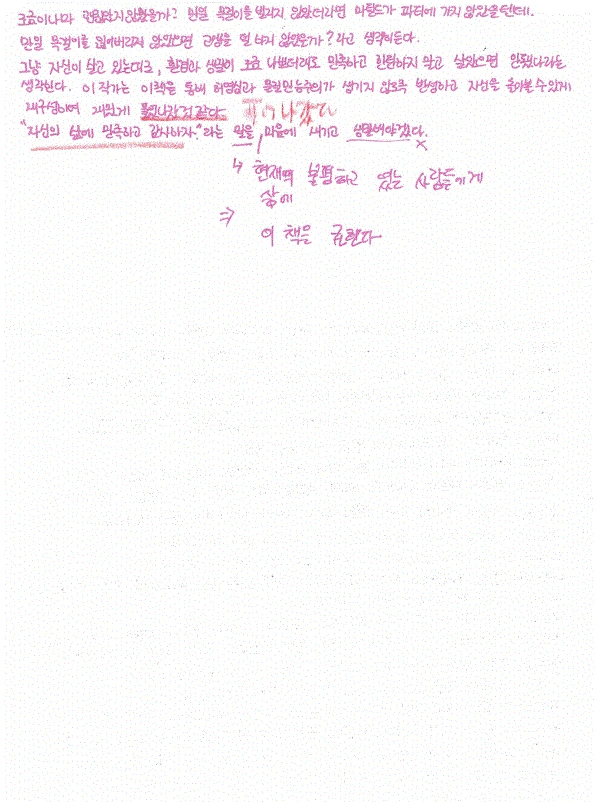 조금이나마 괜찮았지 않았을까? 만일 목걸이를 빌리지 않았더라면 마틸드가 파티에 가지 않았을텐데.
만일 목걸이를 잃어버리지 않았으면 고생을 덜 하지 않았을까? 라고 생각이든다.
그냥 자신이 살고 있는대로, 환경과 생활이 조금 나쁘더래도 만족하고 한탄하지 말고 살았으면 안됐다라는
생각한다. 이 작가는 이책을 통해 허영심과 물질만능주의가 생기지 않도록 반성하고 자신을 돌아볼 수 있게
재구성하여 재밌게 풀어나간것 같다. 풀어 나갔다
"자신의 삶에 만족하고 감사하자." 라는 말을 마음에 새기고 생활해야겠다.
↳ 현재의 불평하고 있는 사람들에게
삶에
⇒
이 책을 권한다